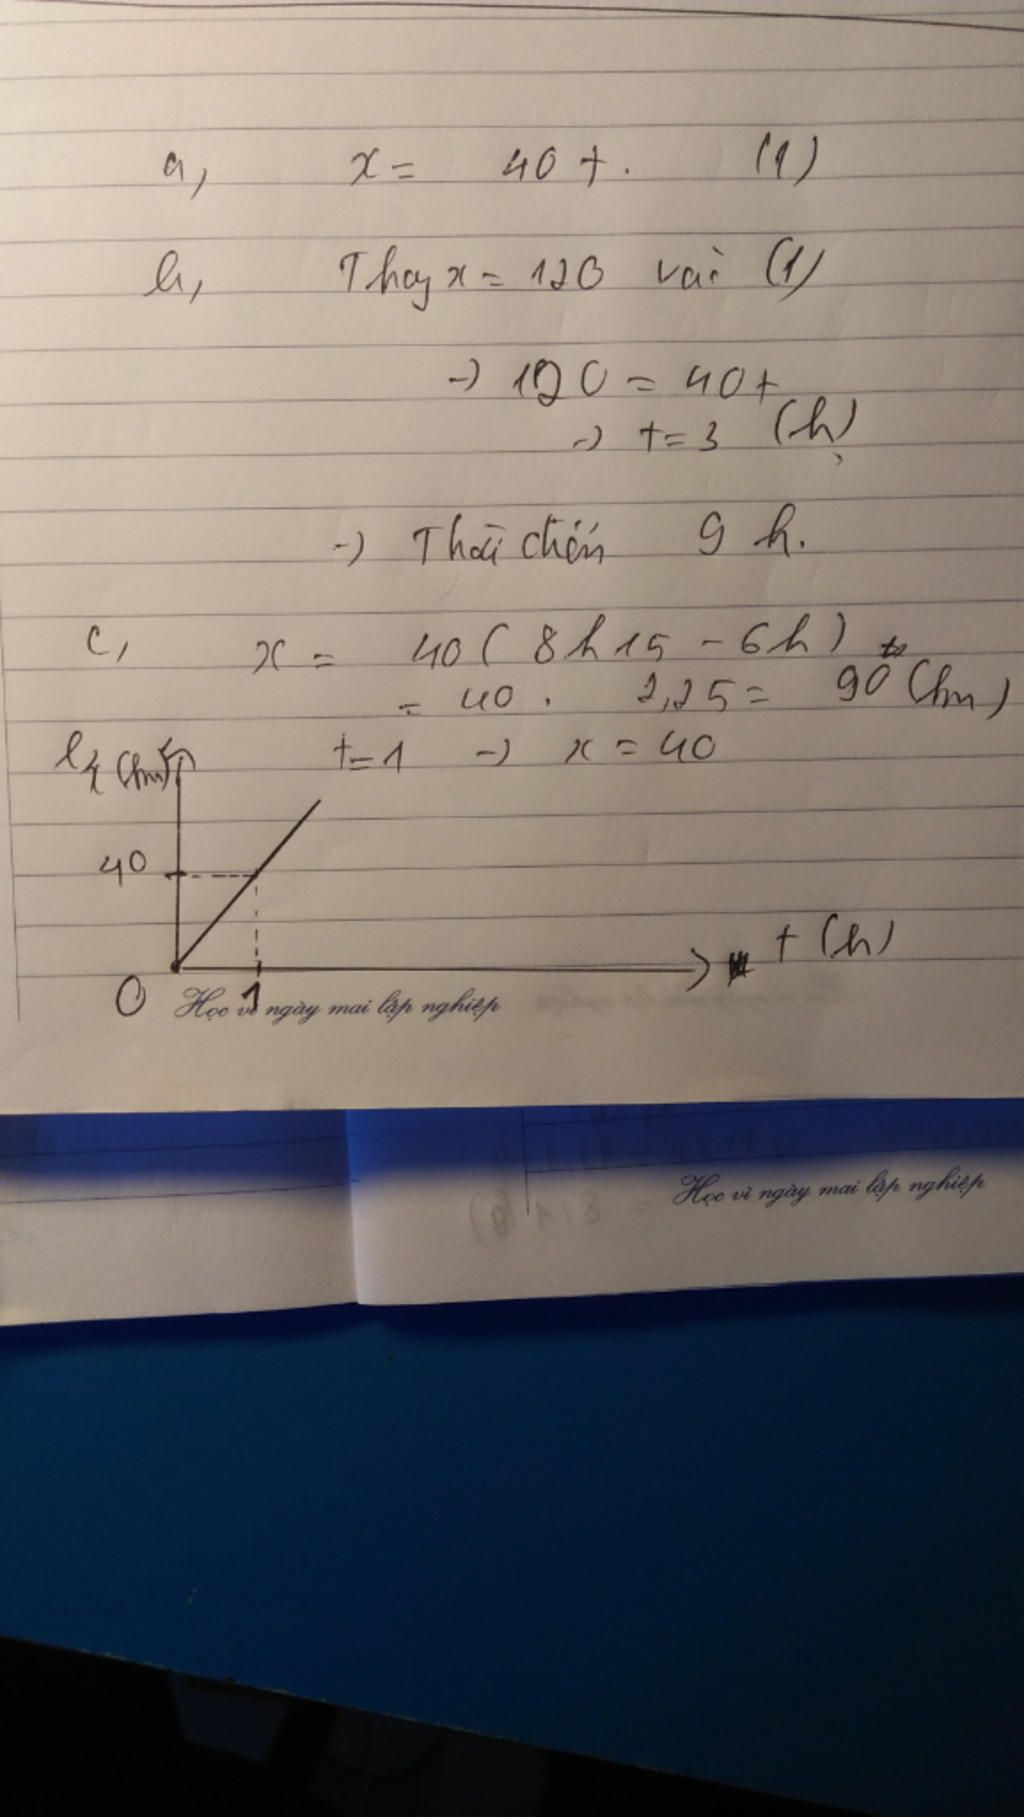 a, x = 40t. (1)
b, Thay x = 120 vào (1)
-> 120 = 40t
-> t = 3 (h)
-> Thời điểm 9 h.
c, x = 40 ( 8h15 - 6h )
= 40 . 2,25 = 90 (km)
t = 1 -> x = 40
(km)
40
t (h)
0 1
Học vì ngày mai lập nghiệp
Học vì ngày mai lập nghiệp